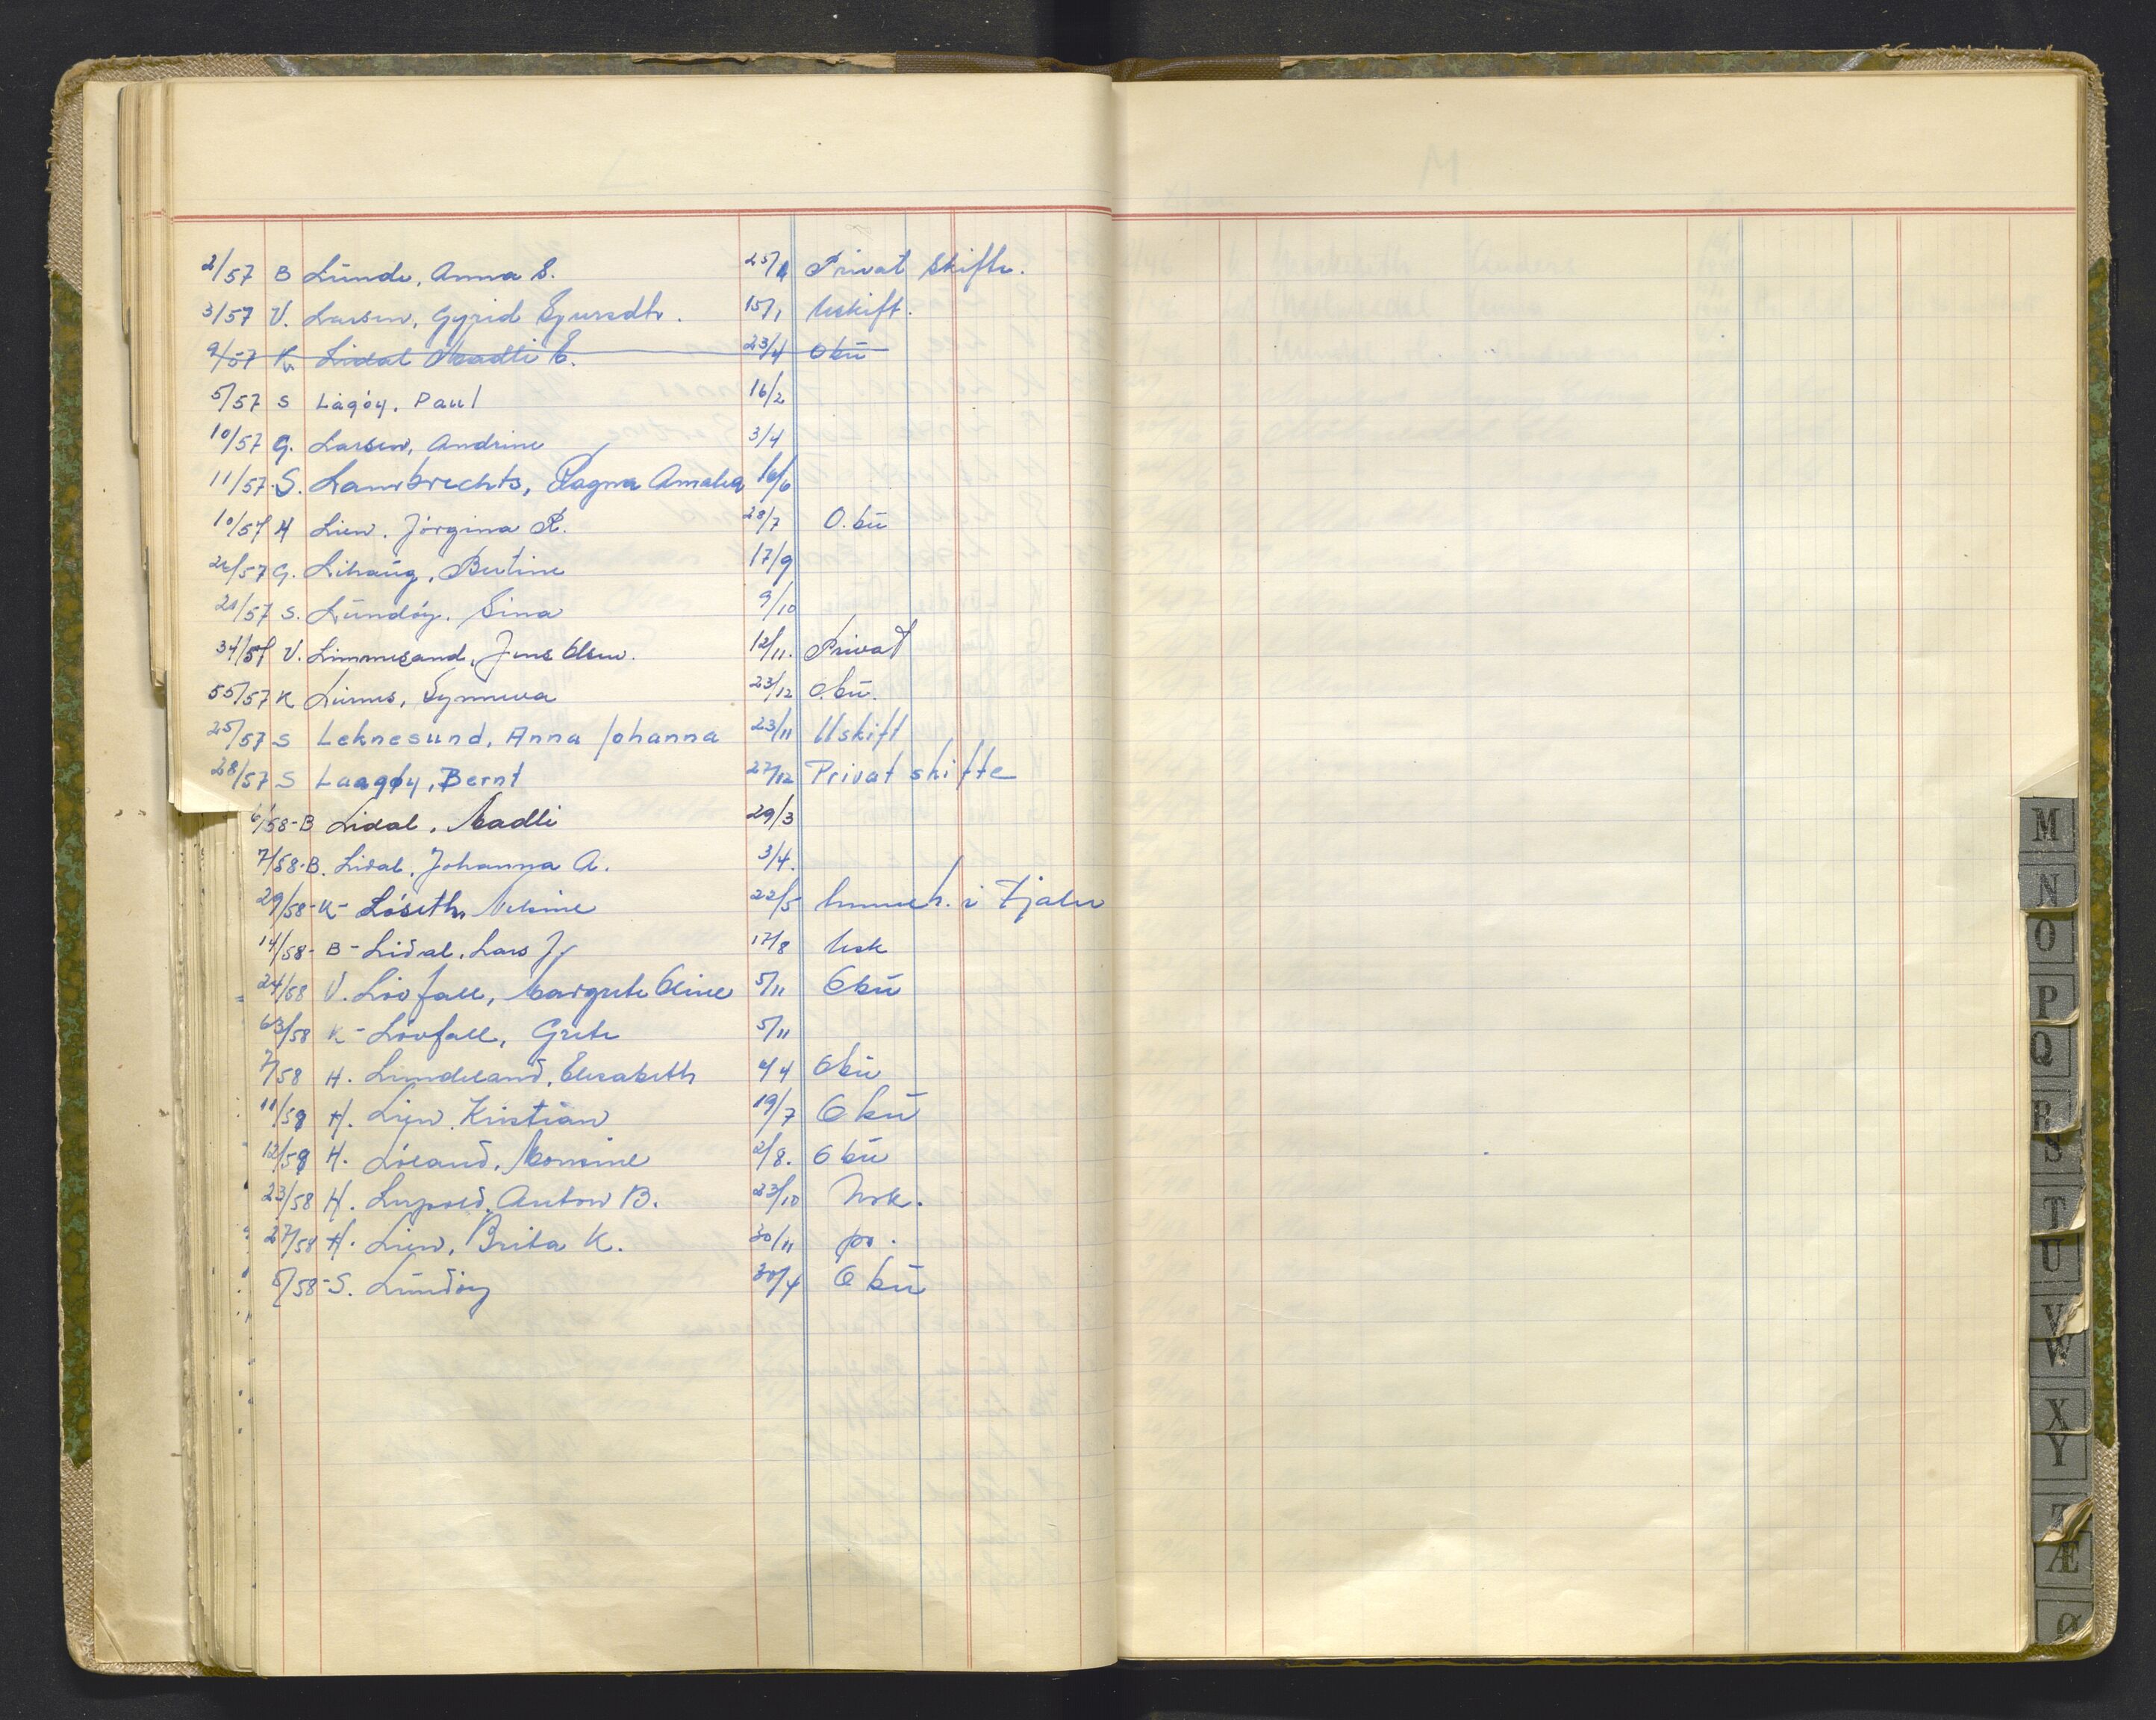 2/57 B Lunde, Anna S. 25/1 Privat skifte.
3/57 V. Larsen, Gyrid Sjursdtr. 15/1 Uskift.
9/57 K Lidal Madli E. 23/4 O bu
5/57 S Lågöy. Paul 16/2
10/57 G. Larsen, Andrine 3/4
11/57 S. Lambrechts, Ragna Amalia 16/6
10/57 H Lien. Jörgina R. 28/7 O. bu
G. Lihaug, Bertine 17/9
21/57 S. Lundöy. Sina 9/10
34/57 V. Limmesand, Jens Olsen. 12/11. Privat
55/57 K Synneva 23/12 O. bu.
25/57 S Leknesund, Anna Johanna 23/11 Uskift
28/57 S Laagøy, Bernt 27/12 Privat skifte
6/58-B Lidal, Madli 29/3
7/58-B. Lidal, Johanna A. 3/4.
29/58-K- Löseth, 22/5 i Fjaler
14/58- B- Lidal, Lars J. 17/8 Usk
24/58 V. Lövfall, Margrete Oline 5/11 O bu
63/58 K- Lövfall, Grete 5/11
7/58 H. Lundeland, Elisabeth 4/4 O bu
11/58 H. Lien, Kristian 19/7 O bu
12/58 H. Löland, Monsine 2/8. O bu
23/58 H. Anton B. 23/10 Usk.
27/58 H. Lien, Brita K. 30/11 po.
5/58-S. Lundöy 30/4 O bu
M
N
O
P
Q
R
S
T
U
V
W
X
Y
Z
Æ
Ø